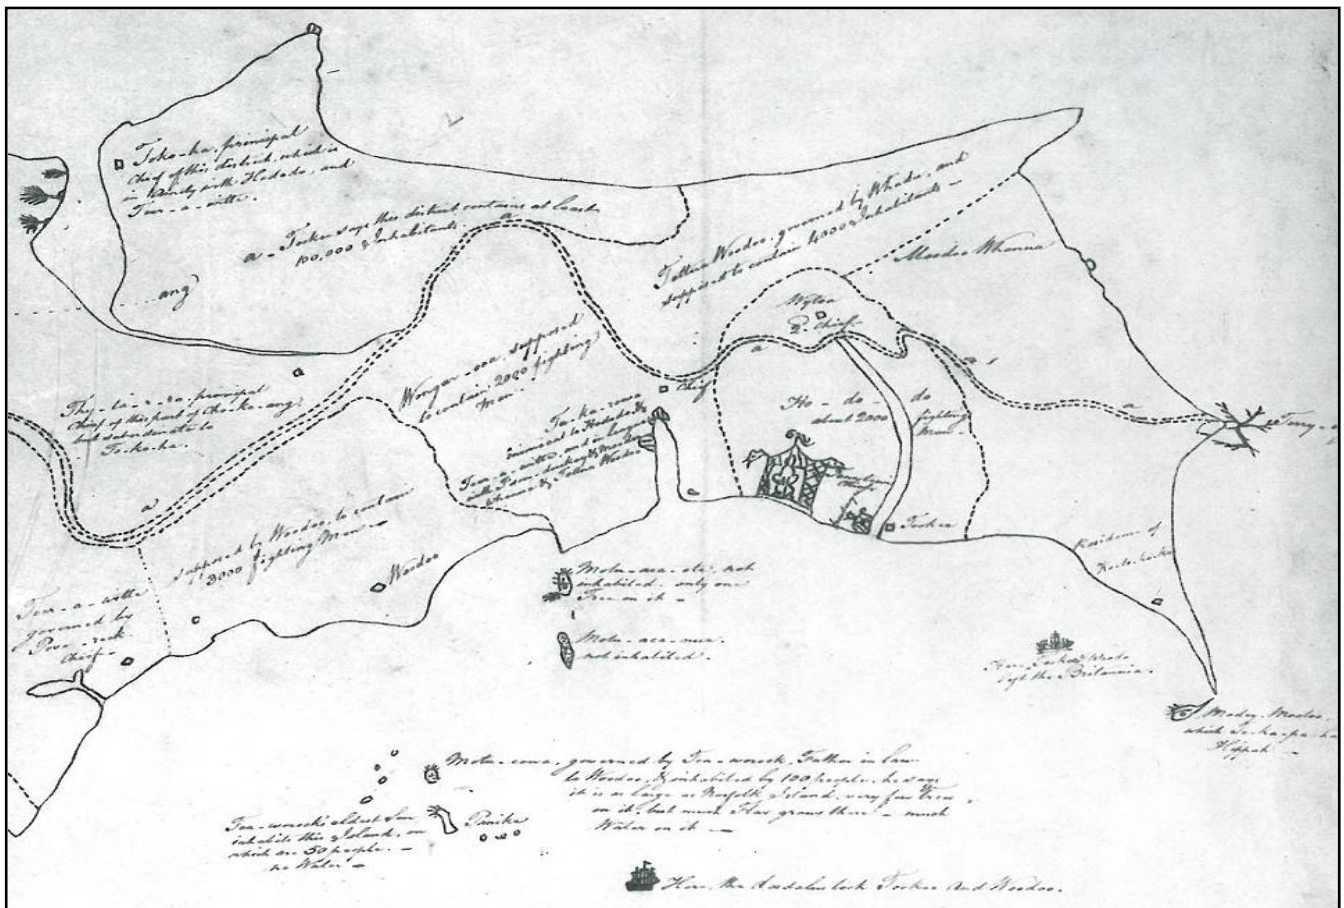 Toko-ha, principal
Chief of this district, which is
in Amity with Hododo, and
Tear-a-witte.
a - Tookee says this district contains at least
100,000 Inhabitants
a
ang
Tettua Woodoo, governed by Whada, and
supposed to contain 4000 Inhabitants -
Moodoo Whanua
Wytoa
P. Chief
a
a
a
Terry-
principal
Chief of this part of Choke-ang
but subordinate to
To-ko-ha.
Wongar-ooa, supposed
to contain 2000 fighting
Men
Chief
To-ko-rowa
inimical to Hododo &
Tear-a-witte, and in league
with & Moodoo
Whanua & Tettua Woodoo
Ho-do-do
about 2000 fighting
Men
Tookee
Residence of
a
supposed by Woodoo, to contain
3000 fighting Men
Woodoo
Tear-a-witte
governed by
Pova-reek
Chief -
Motu-aea-ete, not
inhabited, only one
Tree on it -
Motu-aea-nua
not inhabited.
Here, Tookee & Woodoo
left the Britannia.
Modey Mootoo,
which
Heppah -
Motu-cowa, governed by Tea-worock, Father in law
to Woodoo, & inhabited by 100 people, he says
it is as large as Norfolk Island, very few Trees
on it, but much Flax grows there - much
Water on it -
Tea-worock's eldest Son
inhabits this Island, on
which are 50 people. -
no Water -
Panike
Here, the Daedalus took Tookee and Woodoo.